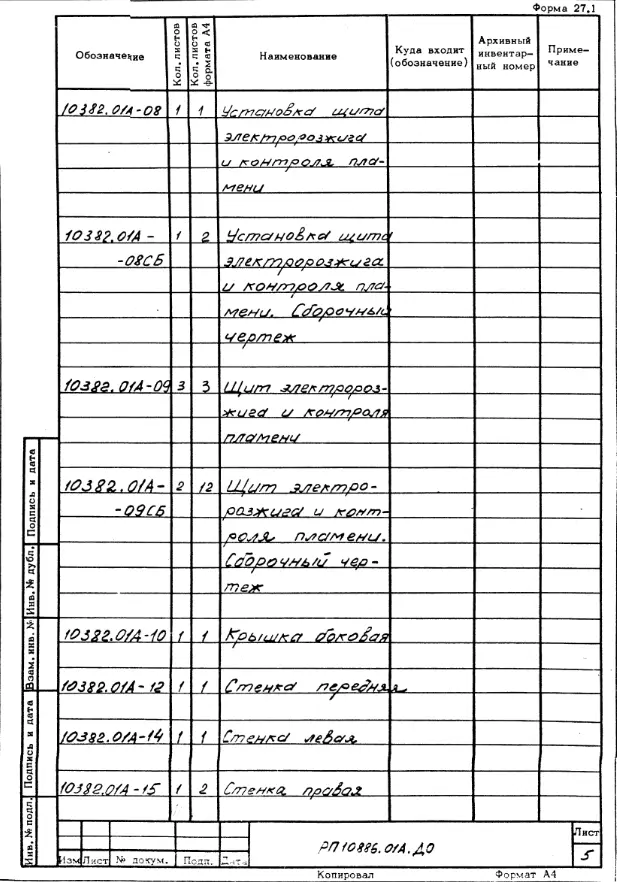 Форма 27.1
Обозначение Кол. листов Кол. листов формата А4 Наименование Куда входит (обозначение) Архивный инвентар- ный номер Приме- чание
10382.01А-08 1 1 Установка щита
электророзжига
и контроля пла-
мени
10382.01А- 1 2 Установка щита
-08СБ электророзжига
и контроля пла-
мени. Сборочный
чертеж
10382.01А-09 3 3 Щит электророз-
жига и контроля
пламени
10382.01А- 2 12 Щит электро-
-09СБ розжига и конт-
роля пламени.
Сборочный чер-
теж
10382.01А-10 1 1 Крышка боковая
10382.01А-12 1 1 Стенка передняя
10382.01А-14 1 1 Стенка левая
10382.01А-15 1 2 Стенка правая
Инв. № подл. Подпись и дата Взам. инв. № Инв. № дубл. Подпись и дата
РП10886.01А.ДО
Лист
5
Изм Лист № докум. Подп. Дата
Копировал Формат А4